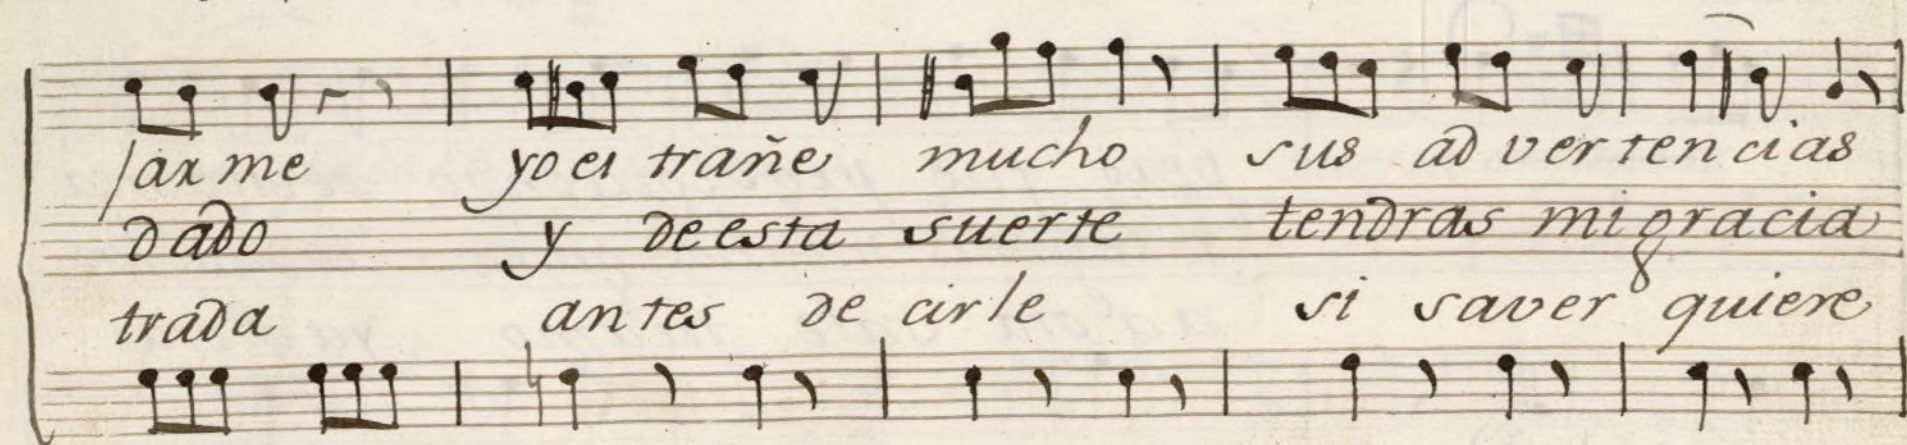 sarme yo es trañe mucho sus ad ver ten cias
dado y de esta suerte tendras mi gracia
trada an tes de cirle si saver quiere